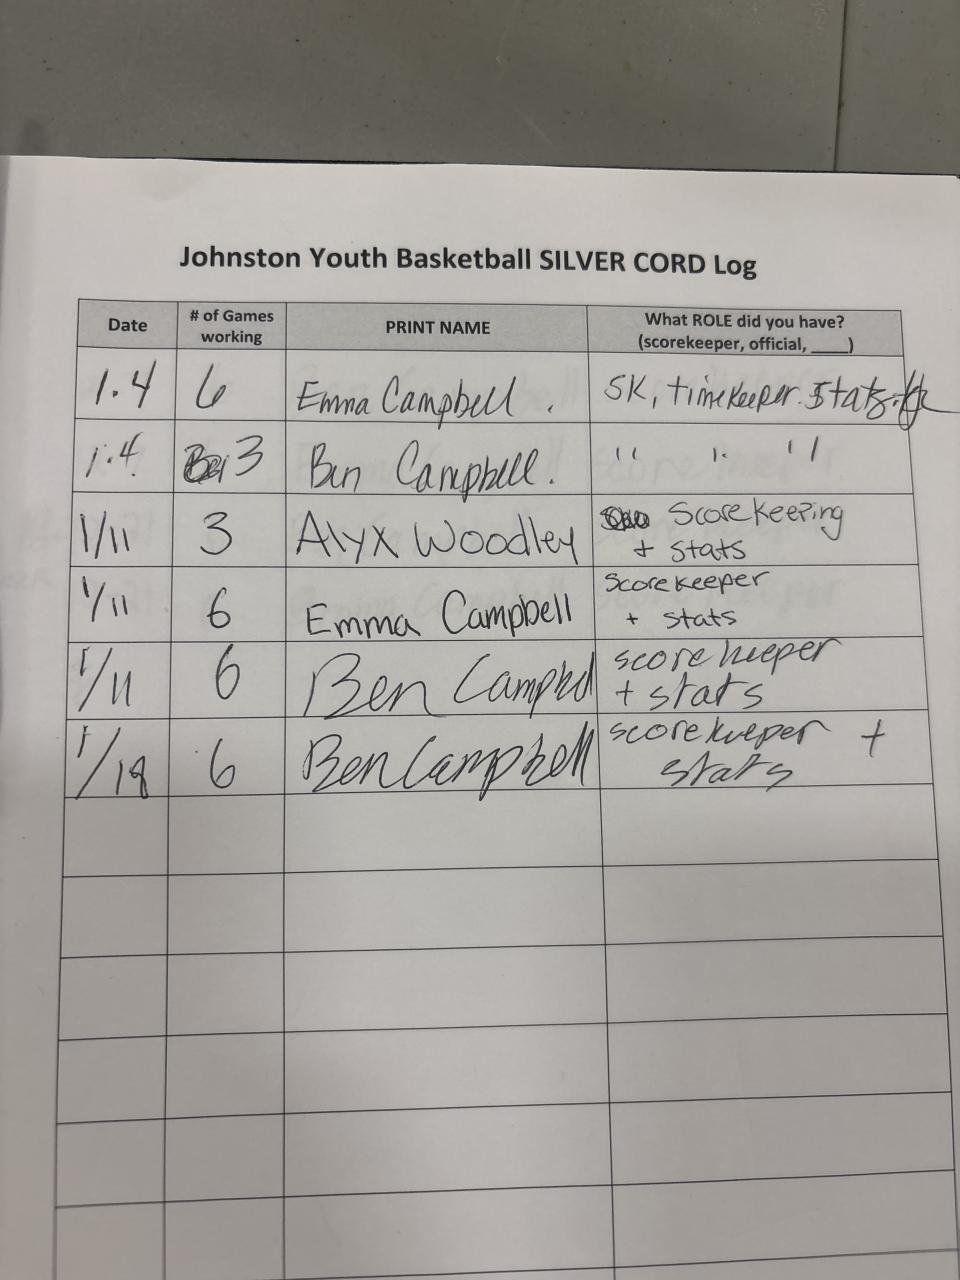 Johnston Youth Basketball SILVER CORD Log
Date
# of Games
working
PRINT NAME
What ROLE did you have?
(scorekeeper, official, ____)
1.4 6 Emma Campbell . SK, timekeeper. Stats.
1.4 3 Ben Campbell. '' '' ''
1/11 3 Alyx Woodley Scorekeeping
+ stats
1/11 6 Emma Campbell Scorekeeper
+ stats
1/11 6 Ben Campbell scorekeeper
+ stats
1/18 6 Ben Campbell scorekeeper +
stats